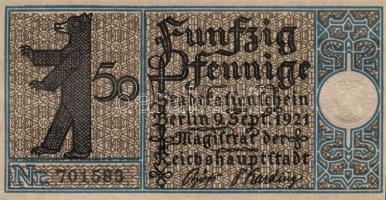 50
Funfzig
Pfennige
Stadtkassenschein
Berlin 9. Sept. 1921
Magistrat der
Reichshauptstadt
Nr. 701583